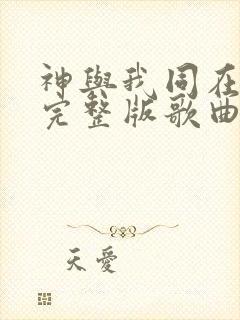 神與我同在
完整版歌曲
天愛